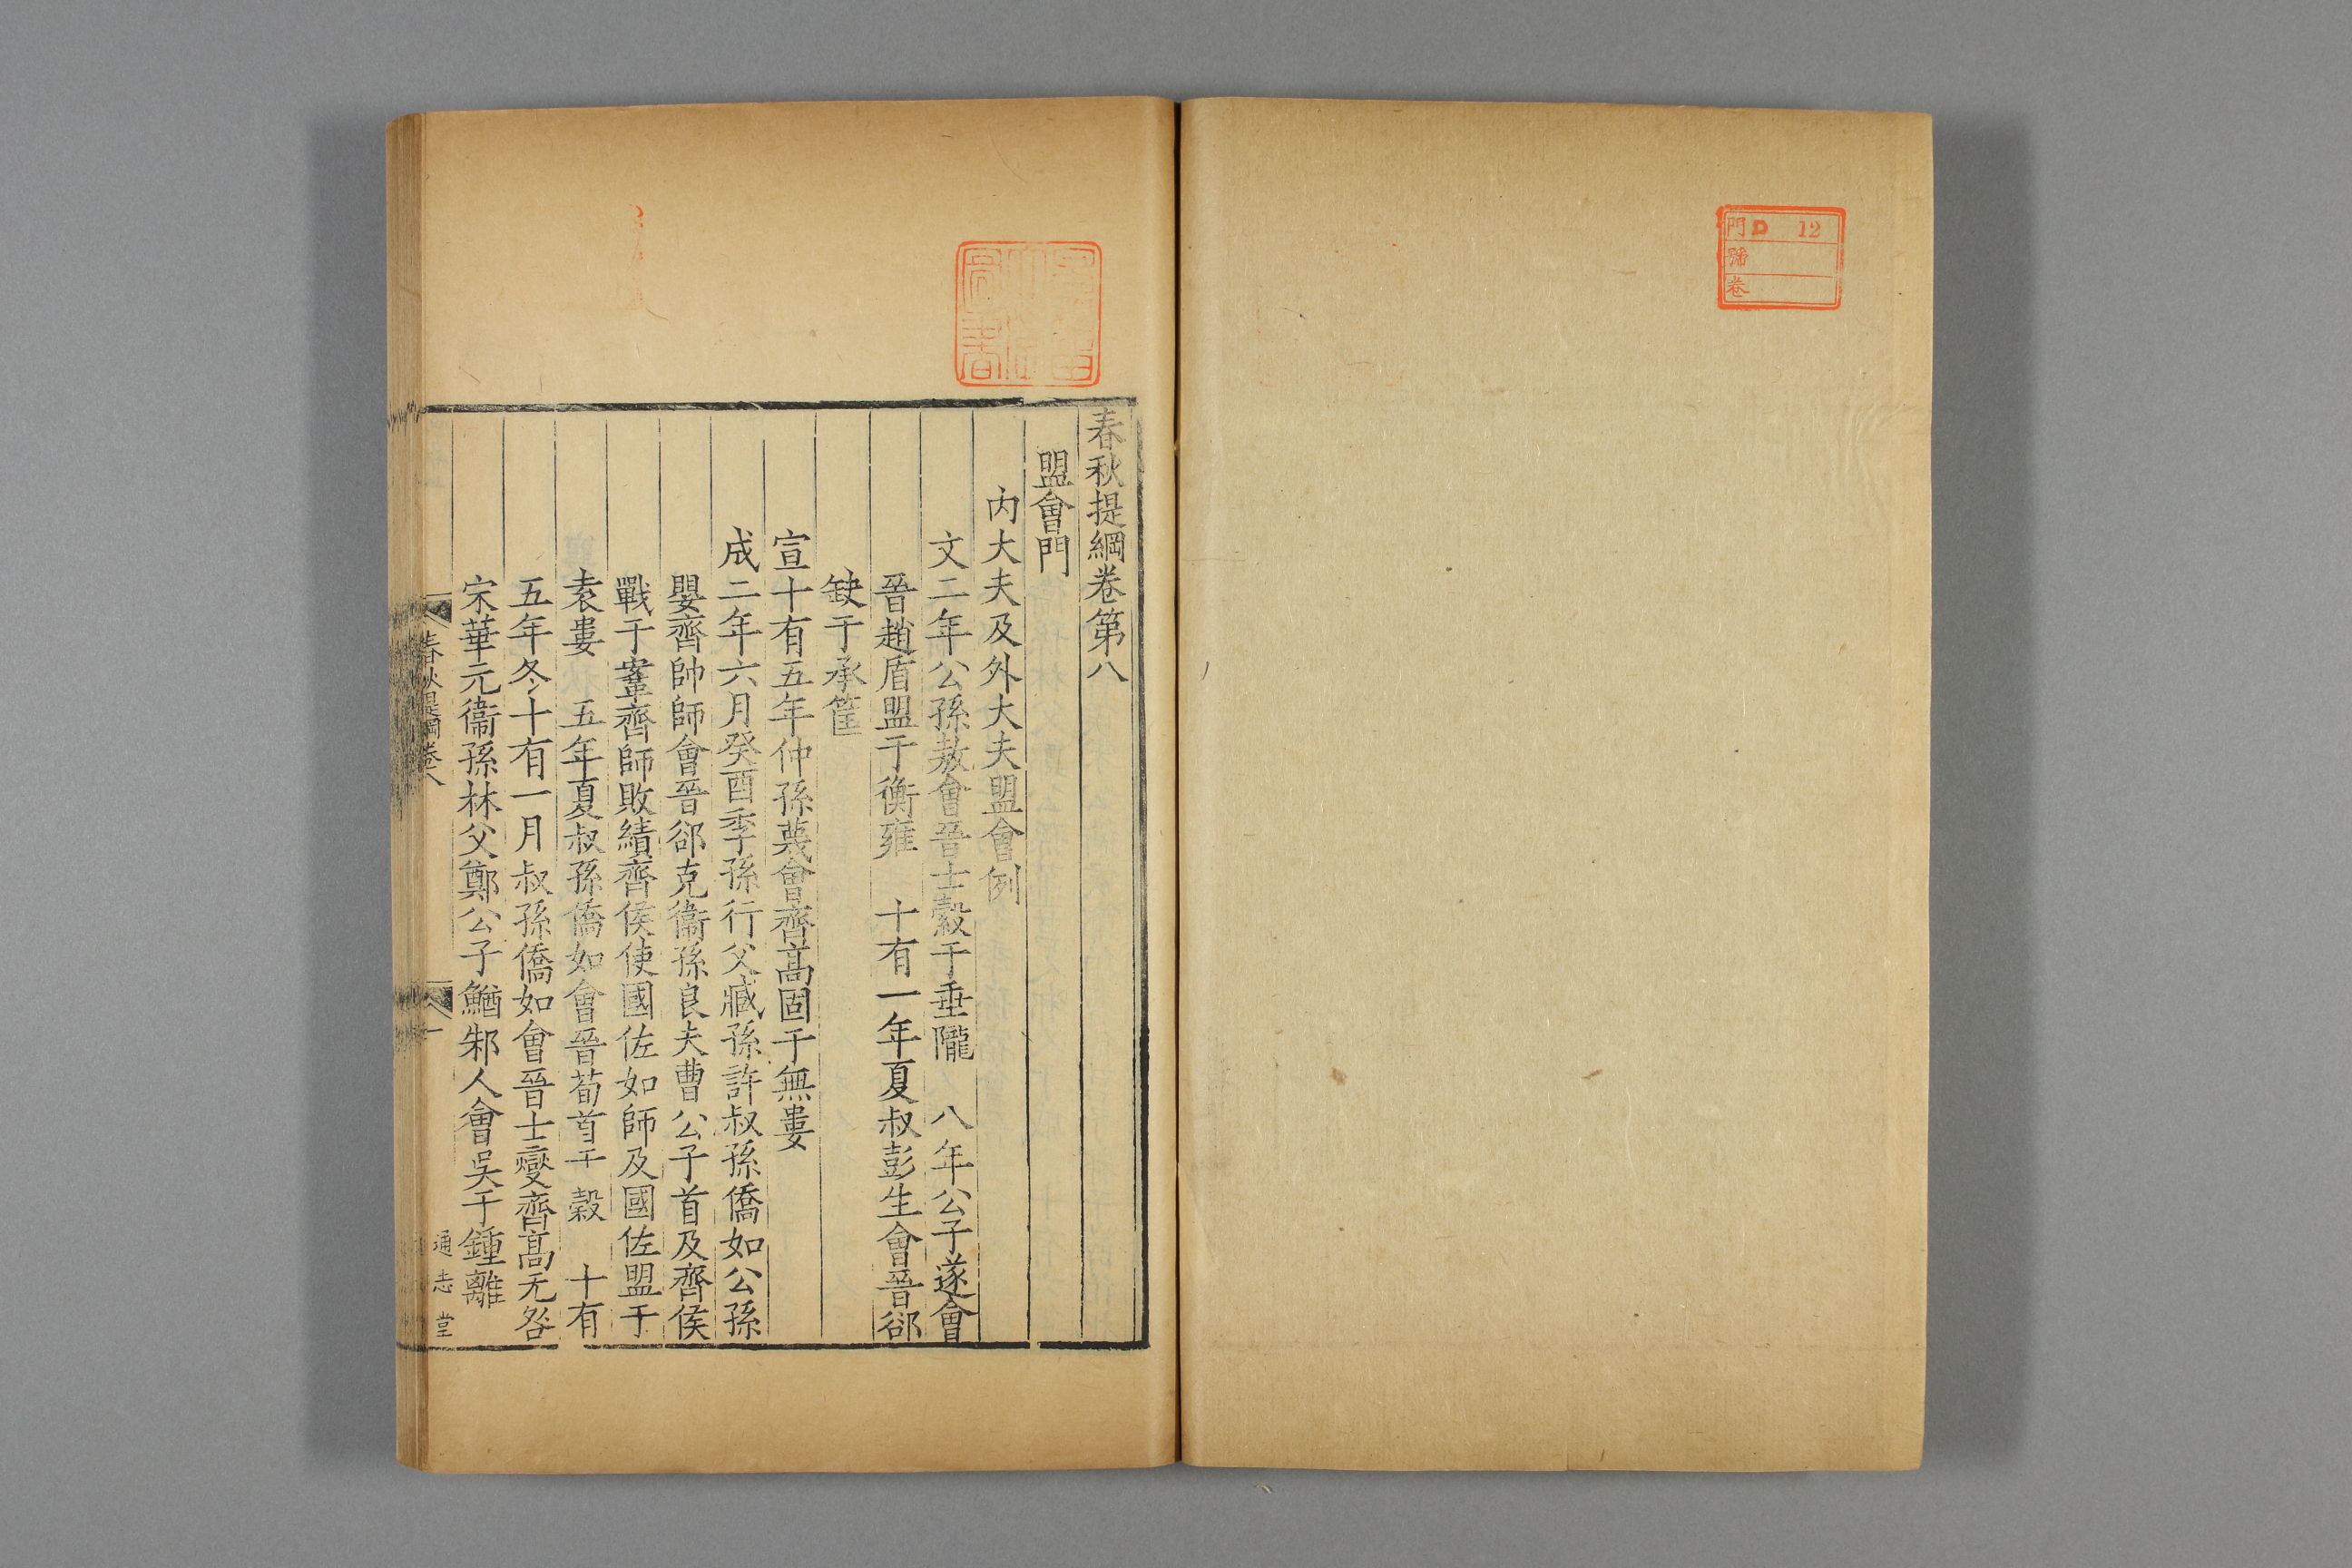 門D 12
號
卷
春秋提綱卷第八
盟會門
內大夫及外大夫盟會例
文二年公孫敖會晉士縠于垂隴 八年公子遂會
晉趙盾盟于衡雍 十有一年夏叔彭生會晉郤
缺于承筐
宣十有五年仲孫蔑會齊高固于無婁
成二年六月癸酉季孫行父臧孫許叔孫僑如公孫
嬰齊帥師會晉郤克衞孫良夫曹公子首及齊侯
戰于鞌齊師敗績齊侯使國佐如師及國佐盟于
袁婁 五年夏叔孫僑如會晉荀首于穀 十有
五年冬十有一月叔孫僑如會晉士燮齊高无咎
宋華元衞孫林父鄭公子鰌邾人會吳于鍾離
春秋提綱卷八
一
通志堂